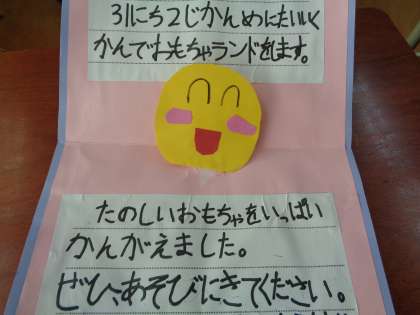 31にち2じかんめにたいいく
かんでおもちゃランドをします。
たのしいおもちゃをいっぱい
かんがえました。
ぜひ、あそびにきてください。